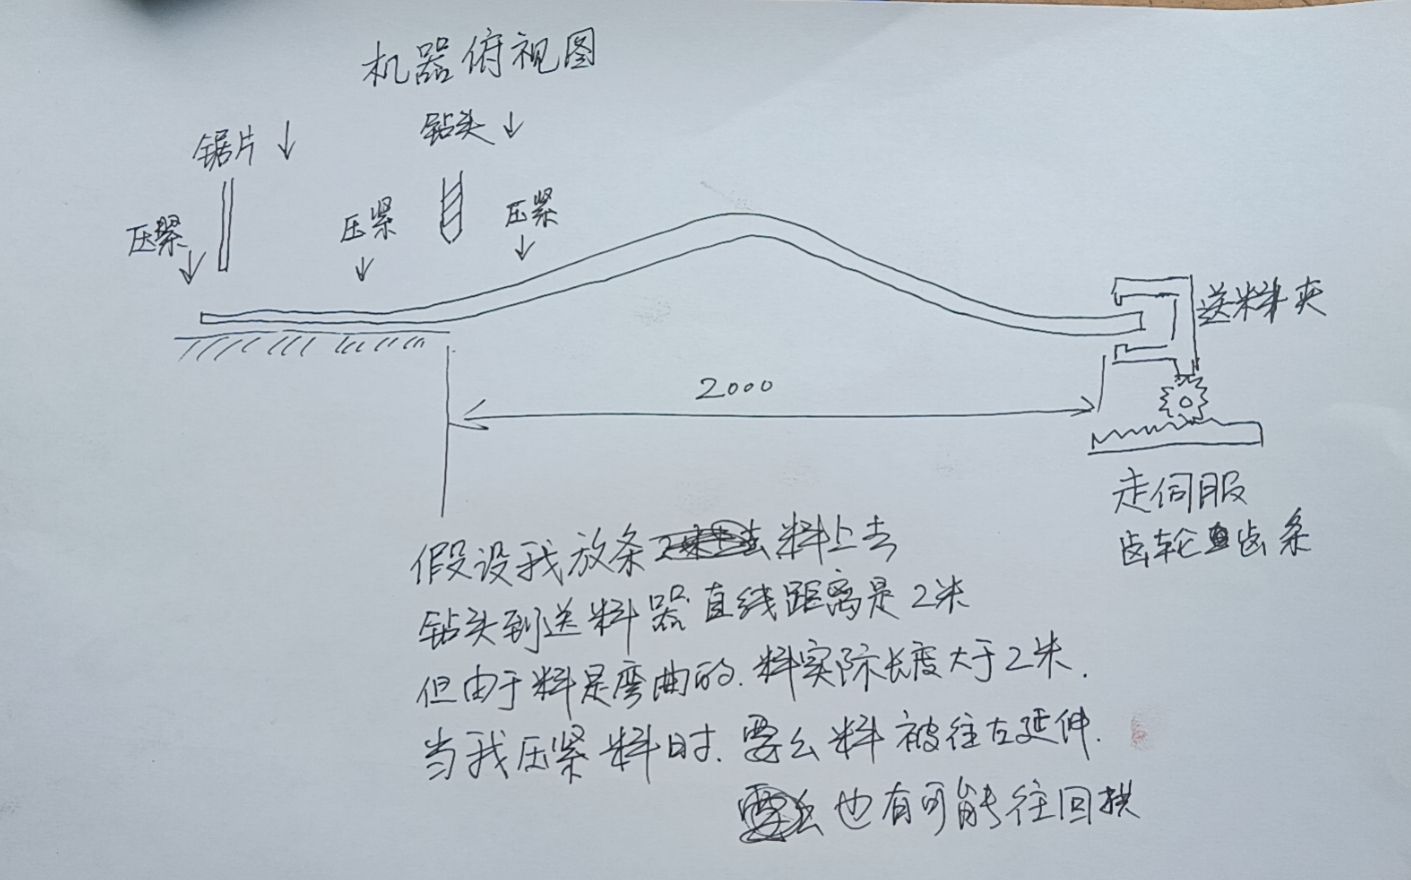 机器俯视图
锯片
钻头
压紧
压紧
压紧
送料夹
2000
走伺服
齿轮 齿条
假设我放条 料上去
钻头到送料器直线距离是2米
但由于料是弯曲的.料实际长度大于2米.
当我压紧料时.要么料被往左延伸.
也有可能往回拱